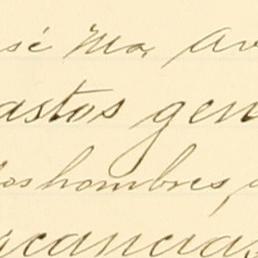 osé Ma. Av
astos gen
los hombres, a
rcancias